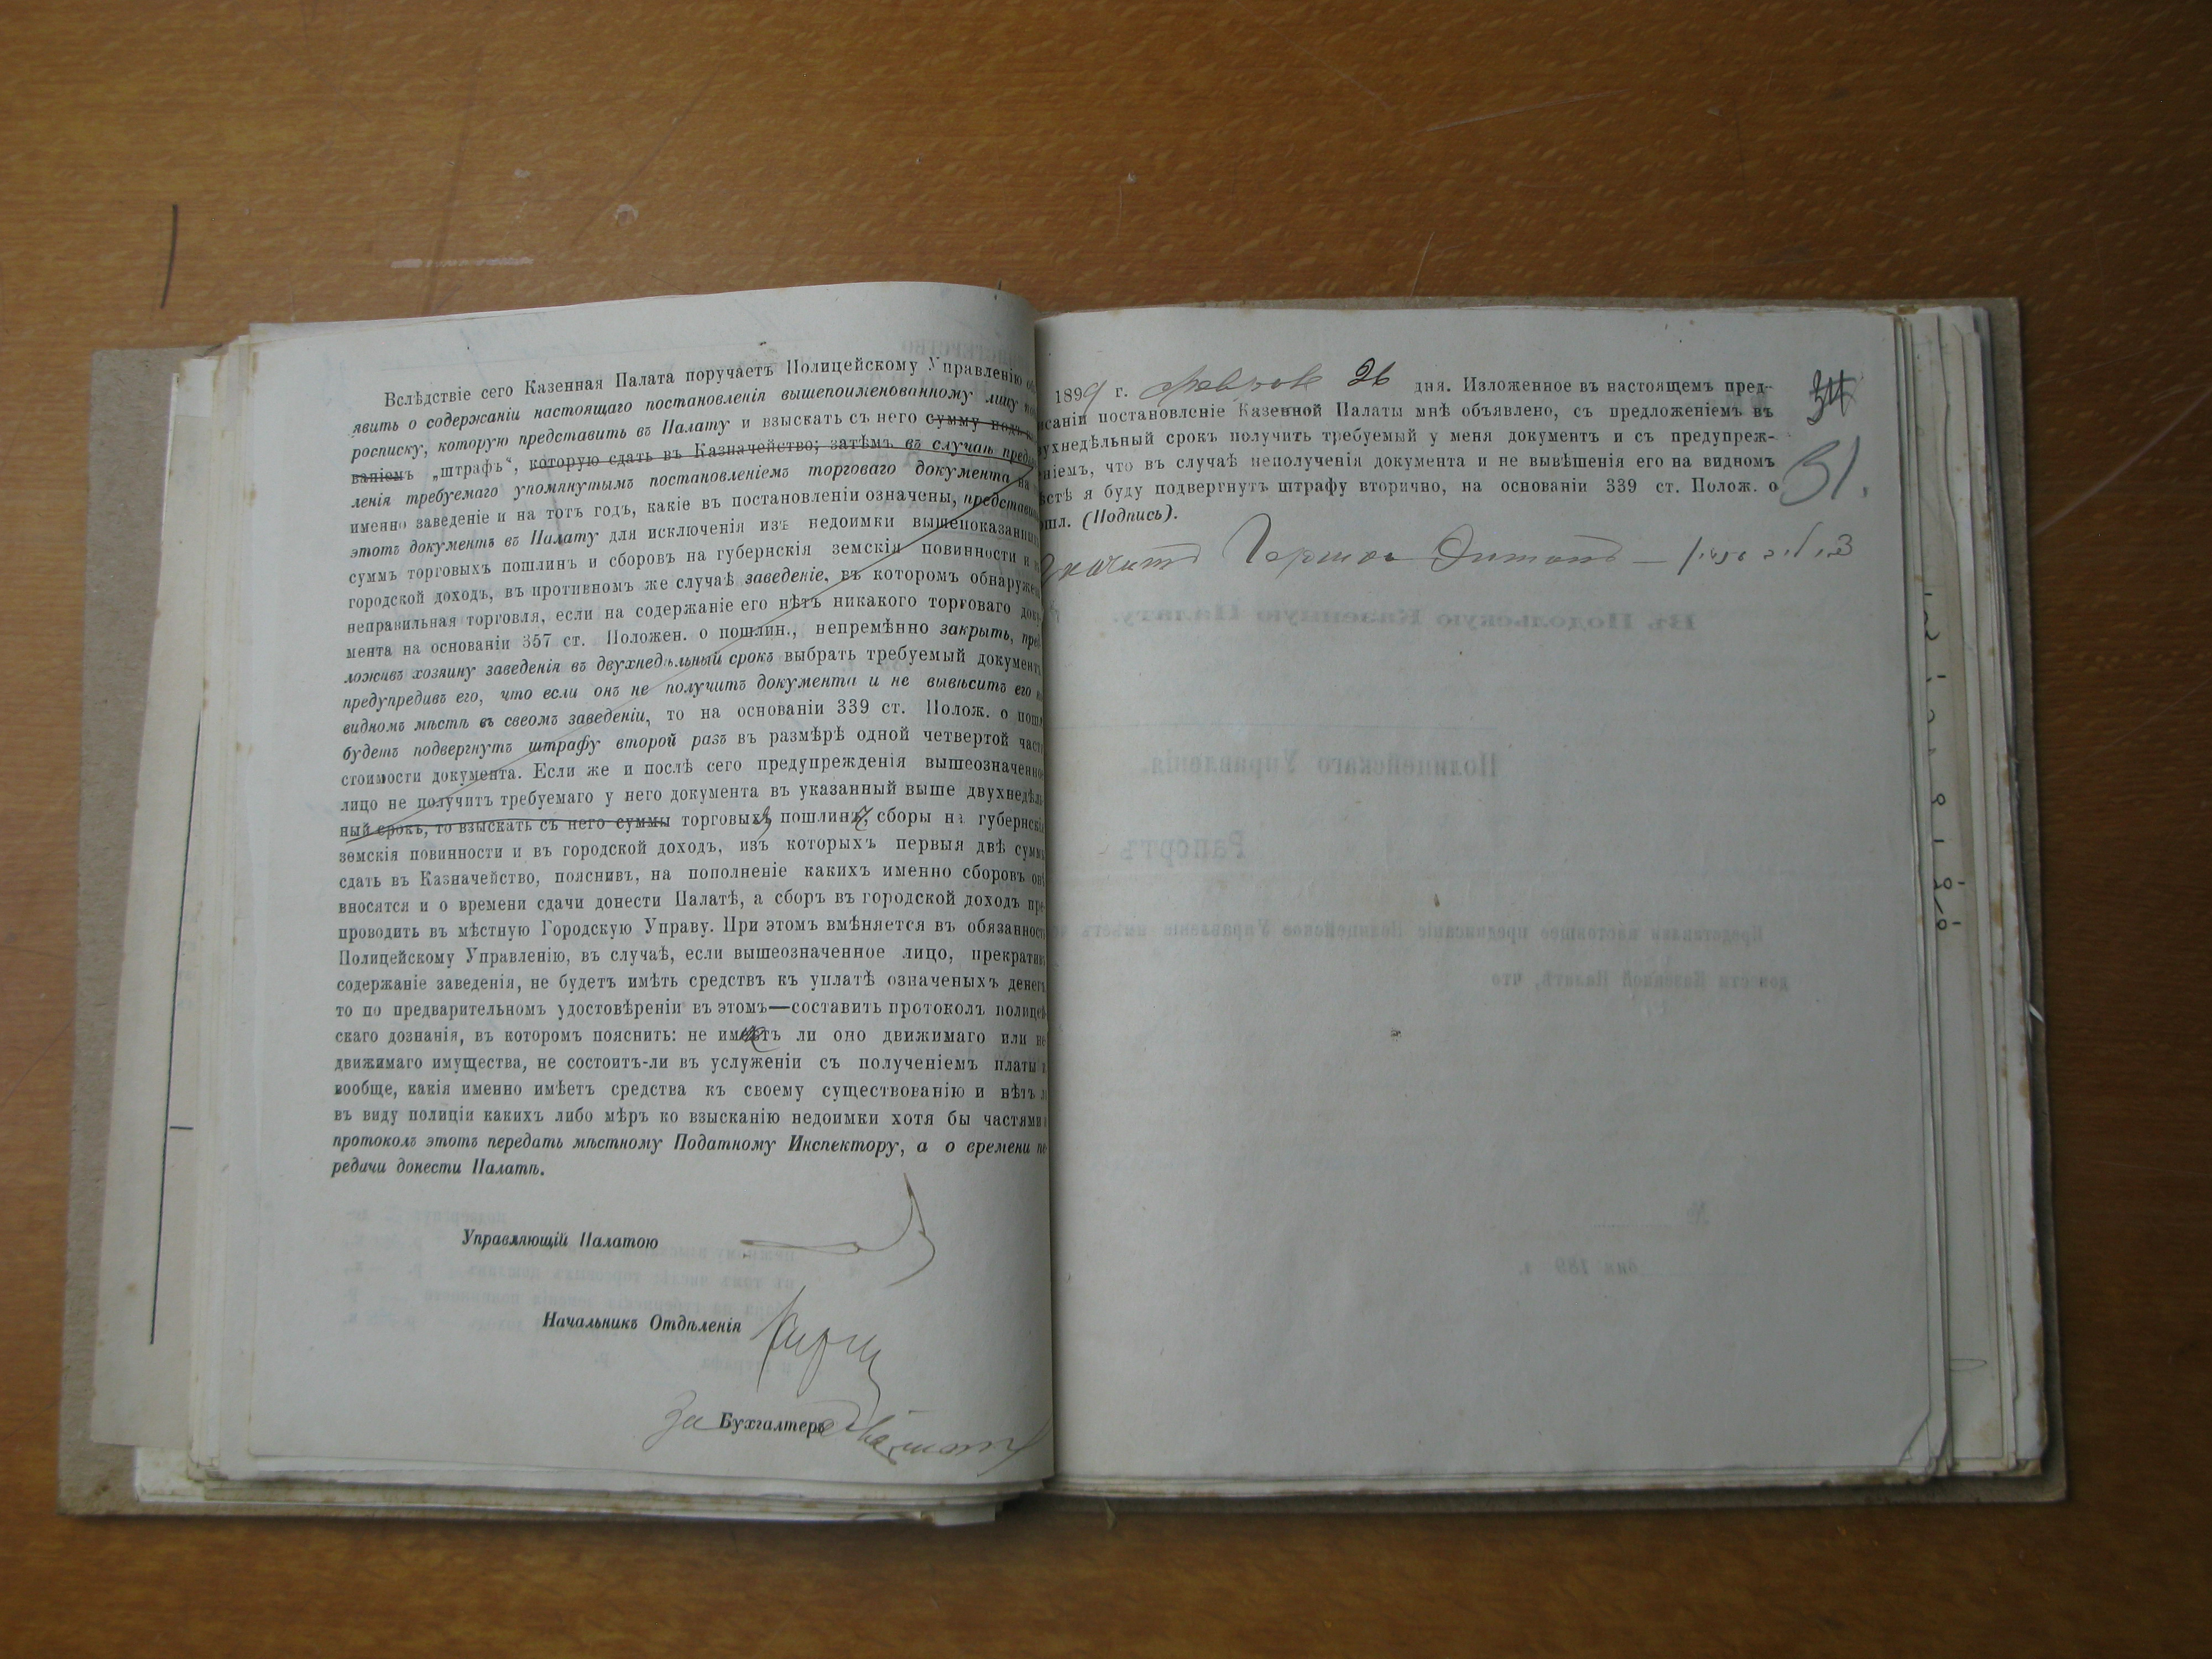 Вслѣдствіе сего Казенная Палата поручаетъ Полицейскому Управленію
явить о содержаніи настоящаго постановленія вышепоименованному лицу
росписку, которую представить въ Палату и взыскать съ него сумму подъ
ваніемъ „штрафъ“, которую сдать въ Казначейство; затѣмъ въ случаѣ
ленія требуемаго упомянутымъ постановленіемъ торговаго документа на
именно заведеніе и на тотъ годъ, какіе въ постановленіи означены, представить
этотъ документъ въ Палату для исключенія изъ недоимки вышепоказанныхъ
суммъ торговыхъ пошлинъ и сборовъ на губернскія земскія повинности и
городской доходъ, въ противномъ же случаѣ заведеніе, въ которомъ обнаружена
неправильная торговля, если на содержаніе его нѣтъ никакого торговаго доку-
мента на основаніи 357 ст. Положен. о пошлин., непремѣнно закрыть, пред-
ложивъ хозяину заведенія въ двухнедѣльный срокъ выбрать требуемый документъ
предупредивъ его, что если онъ не получитъ документа и не вывѣситъ его на
видномъ мѣстѣ въ своемъ заведеніи, то на основаніи 339 ст. Полож. о пошл
будетъ подвергнутъ штрафу второй разъ въ размѣрѣ одной четвертой части
стоимости документа. Если же и послѣ сего предупрежденія вышеозначенное
лицо не получитъ требуемаго у него документа въ указанный выше двухнедѣль-
ный срокъ, то взыскать съ него суммы торговыхъ пошлинъ, сборы на губернскія
земскія повинности и въ городской доходъ, изъ которыхъ первыя двѣ суммы
сдать въ Казначейство, пояснивъ, на пополненіе какихъ именно сборовъ онѣ
вносятся и о времени сдачи донести Палатѣ, а сборъ въ городской доходъ пре-
проводить въ мѣстную Городскую Управу. При этомъ вмѣняется въ обязанность
Полицейскому Управленію, въ случаѣ, если вышеозначенное лицо, прекративъ
содержаніе заведенія, не будетъ имѣть средствъ къ уплатѣ означеныхъ денегъ
то по предварительномъ удостовѣреніи въ этомъ—составить протоколъ полицей-
скаго дознанія, въ которомъ пояснить: не имѣетъ ли оно движимаго или не-
движимаго имущества, не состоитъ-ли въ услуженіи съ полученіемъ платы и
вообще, какія именно имѣетъ средства къ своему существованію и нѣтъ ли
въ виду полиціи какихъ либо мѣръ ко взысканію недоимки хотя бы частями и
протоколъ этотъ передать мѣстному Податному Инспектору, а о времени пе-
редачи донести Палатѣ.
Управляющій Палатою
Начальникъ Отдѣленія
За Бухгалтеръ
1899 г. Февраля 26 дня. Изложенное въ настоящемъ пред-
исаніи постановленіе Казенной Палаты мнѣ объявлено, съ предложеніемъ въ
вухнедѣльный срокъ получить требуемый у меня документъ и съ предупреж-
ніемъ, что въ случаѣ неполученія документа и не вывѣшенія его на видномъ
ѣстѣ я буду подвергнутъ штрафу вторично, на основаніи 339 ст. Полож. о
шл. (Подпись).
34
31.